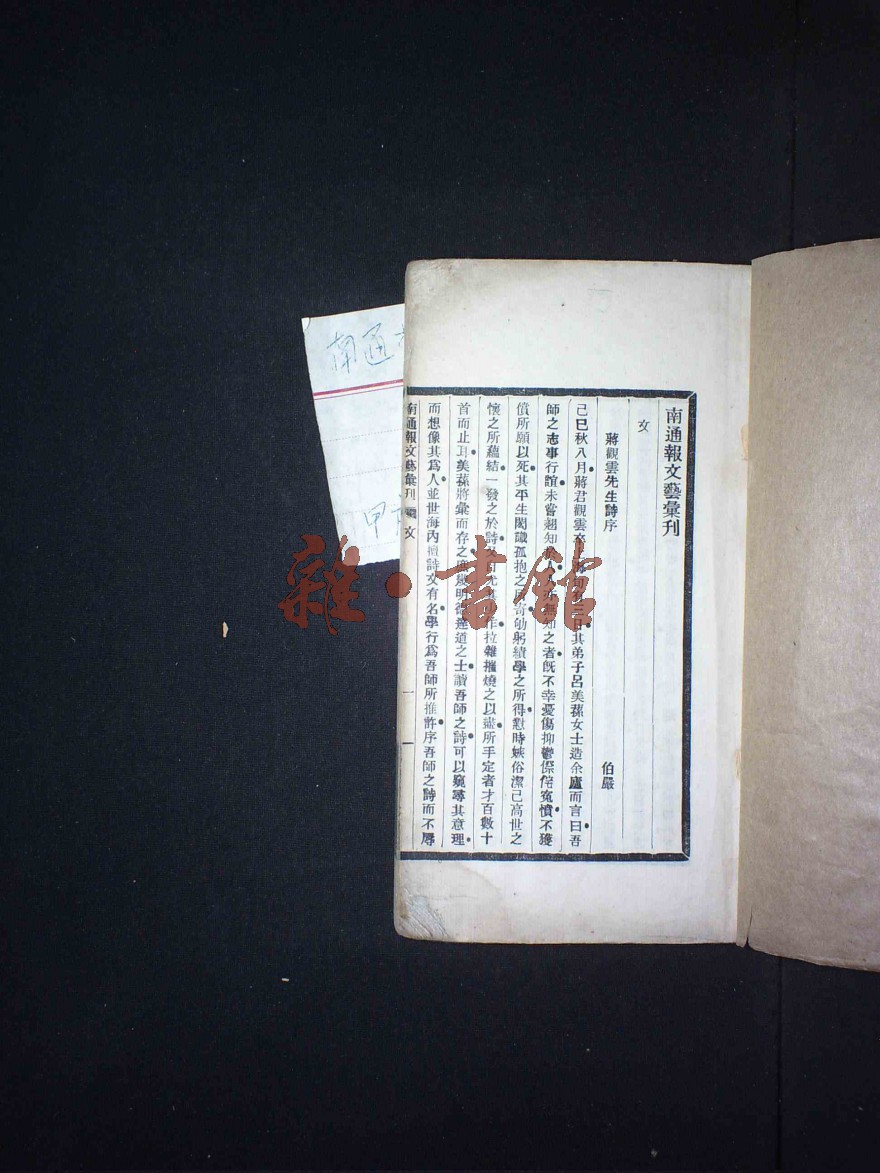 南通報文藝彙刊
文
蔣觀雲先生詩序 伯嚴
己巳秋八月蔣君觀雲卒 三日其弟子呂美蓀女士造余廬而言曰吾
師之志事行誼未嘗翹知於 知之者既不幸憂傷抑鬱傺侘冤憤不獲
償所願以死其平生閎識孤抱之所寄劬躬績學之所得懟時嫉俗潔己高世之
懷之所蘊結一發之於詩 拉雜摧燒之以盡所手定者才百數十
首而止耳美蓀將彙而存之庶幾明德達道之士讀吾師之詩可以窺尋其意理
而想像其爲人並世海內擅詩文有名學行爲吾師所推許序吾師之詩而不辱
南通報文藝彙刊 文 一
南通
甲
雜·書館